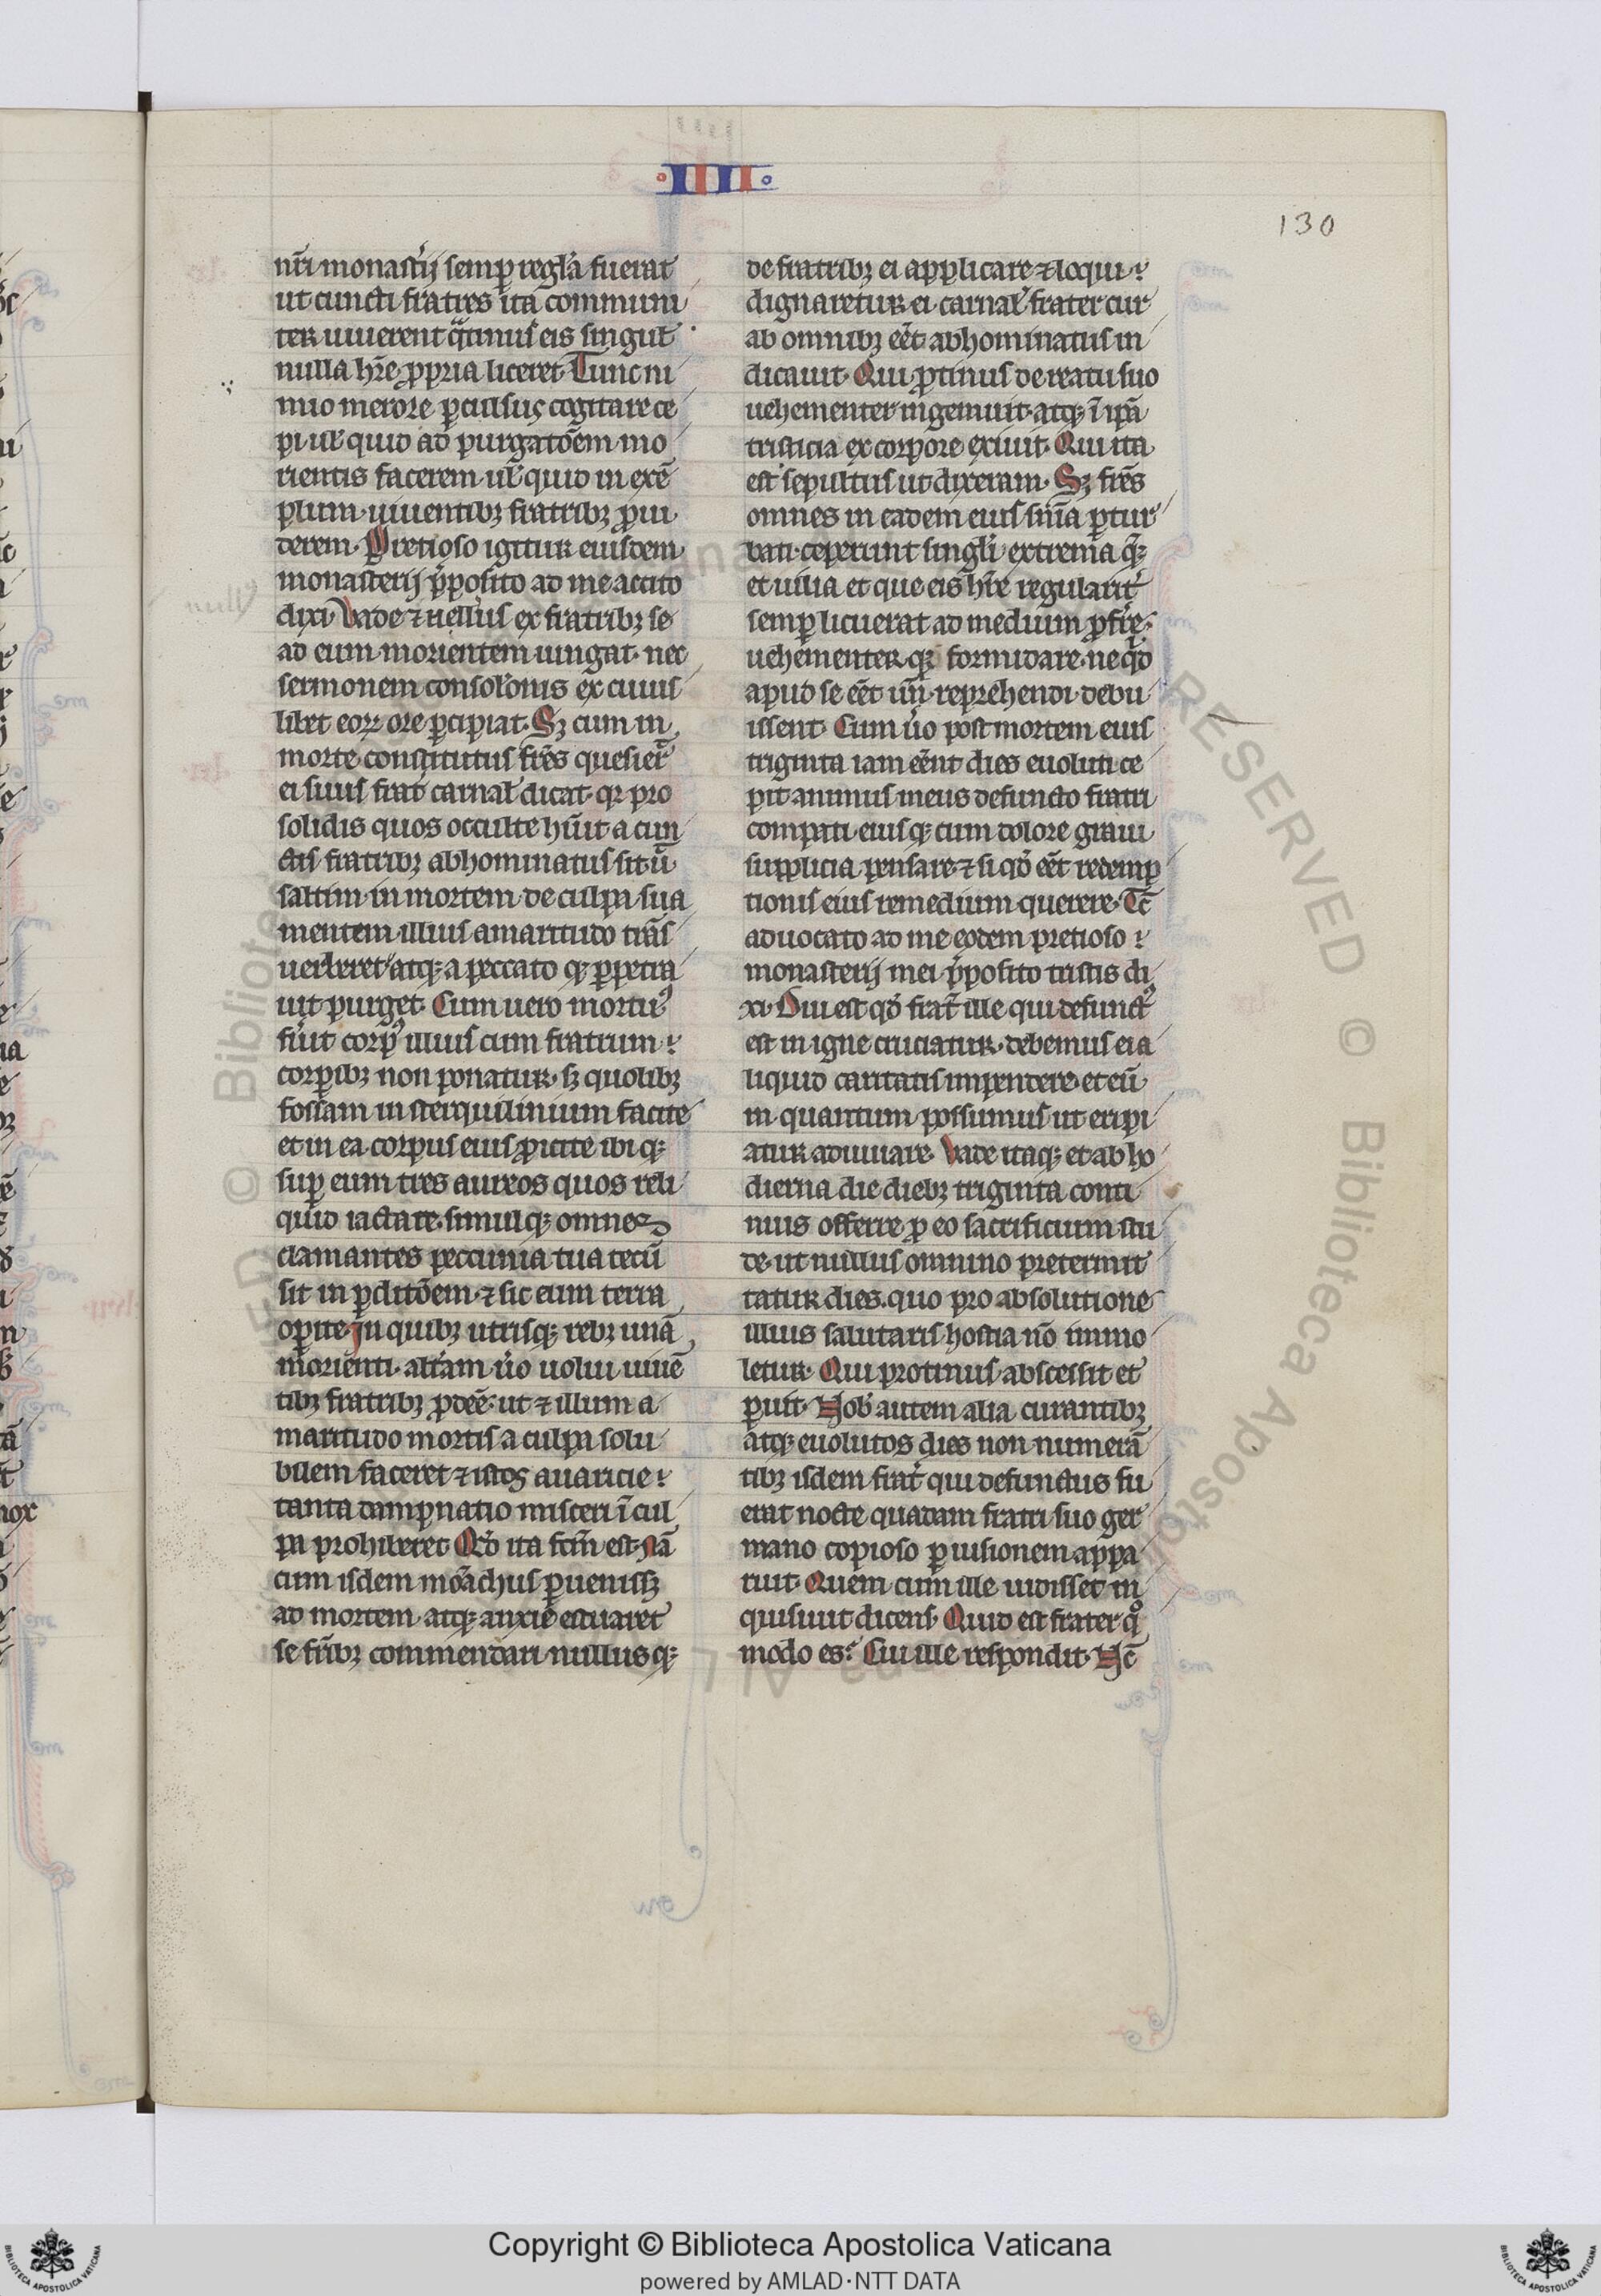 ·IIII·
130
nr̄i monasterij semp̱ regl̄a fuerat
ut cuncti fratres ita communi
ter uiuerent q̄tinus eis singul̛
nulla hr̄e propria liceret Tunc ni
mio merore ꝑculsus cogitare ce
pi ul̛ quid ad purgatōem mo
rientis facerem ul̛ quid in exē
plum uiuentibꝫ fratribꝫ ꝓui
derem. Pretioso igitur eiusdem
monasterij p̄posito ad me accito
dixi Vade ⁊ nellus ex fratribꝫ se
ad eum morientem iungat. nec
sermonem consolōnis ex cuius
libet eoꝝ ore ꝑcipiat. Sꝫ cum in
morte constitutus fr̄es quesier̄
ei suus frat̛ carnal̛ dicat. qꝛ pro
solidis quos occulte hūit a cun
ctis fratribꝫ abhominatus sit. ū
saltim in mortem de culpa sua
mentem illius amaritudo trās
uerberet atqꝫ a peccato qꝫ ꝑpetra
uit purget. Cum uero mortuꝰ
fūit corpꝰ illius cum fratrum
corporibꝫ non ponatur. sꝫ quolibꝫ
fossam in sterquilinium facite
et in ea corpus eius ꝓicite ibi qꝫ
suꝑ eum tres aureos quos reli
quid iactate. simulqꝫ omnes
clamantes peccunia tua tecū
sit in ꝑditōem. ⁊ sic eum terra
operite. In quibꝫ utrisqꝫ rebꝫ unā
morienti. altām ūo uolui uiuē
tibꝫ fratribꝫ ꝓdeē. ut ⁊ illum a
maritudo mortis a culpa solu
bilem faceret ⁊ istos auaricie
tanta dampnatio misceri ī cul
pa prohiberet Qd̛ ita fcm̄ est. Nā
cum isdem mōachus ꝑuenissꝫ
ad mortem atqꝫ anxie estuaret
se fr̄ibꝫ commendari nullus qꝫ
de fratribꝫ ei applicare ⁊ loqui
dignaretur ei carnal̛ frater cur
ab omnibꝫ eēt abhominatus in
dicauit. Qui ꝓtinus de reatu suo
uehementer ingemuit. atqꝫ ī ip̄a
tristicia ex corpore exiuit. Qui ita
est sepultus ut dixeram. Sꝫ fr̄es
omnes in eadem eius snīa ꝑtur
bati. ceperunt singl̛i extrema qꝫ
et uilia et que eis hr̄e regularit̛
semp̱ licuerat ad medium ꝓfr̄e
uehementer qꝫ formidare. ne qd̛
apud se eēt un̄ reprehendi debu
issent. Cum ūo post mortem eius
triginta iam eēnt dies euoluti ce
pit animus meus defuncto fratri
compati. eiusqꝫ cum dolore graui
supplicia pensare. ⁊ si qd̛ eēt redemp
tionis eius remedium querere. Tc̄
aduocato ad me eodem pretioso
monasterij mei p̄posito tristis di
xi. Diu est qd̛ frat̛ ille qui defunctꝰ
est in igne cruciatur. debemus ei a
liquid caritatis impendere. et eū
in quantum possumus ut eripi
atur adiuuare. Vade itaqꝫ et ab ho
dierna die diebꝫ triginta conti
nuis offerre ꝓ eo sacrificium stu
de. ut nullus omnino pretermit
tatur dies. quo pro absolutione
illius salutaris hostia nō immo
letur. Qui protinus abscessit et
ꝑuit. Nob̛ autem alia curantibꝫ
atqꝫ euolutos dies non numerā
tibꝫ isdem frat̛ qui defunctus fu
erat nocte quadam fratri suo ger
mano copioso ꝑ uisionem appa
ruit. Quem cum ille uidisset in
quisiuit dicens. Quid est frater qͦ
modo es? Cui ille respondit. Nc̄
Copyright © Biblioteca Apostolica Vaticana
powered by AMLAD·NTT DATA